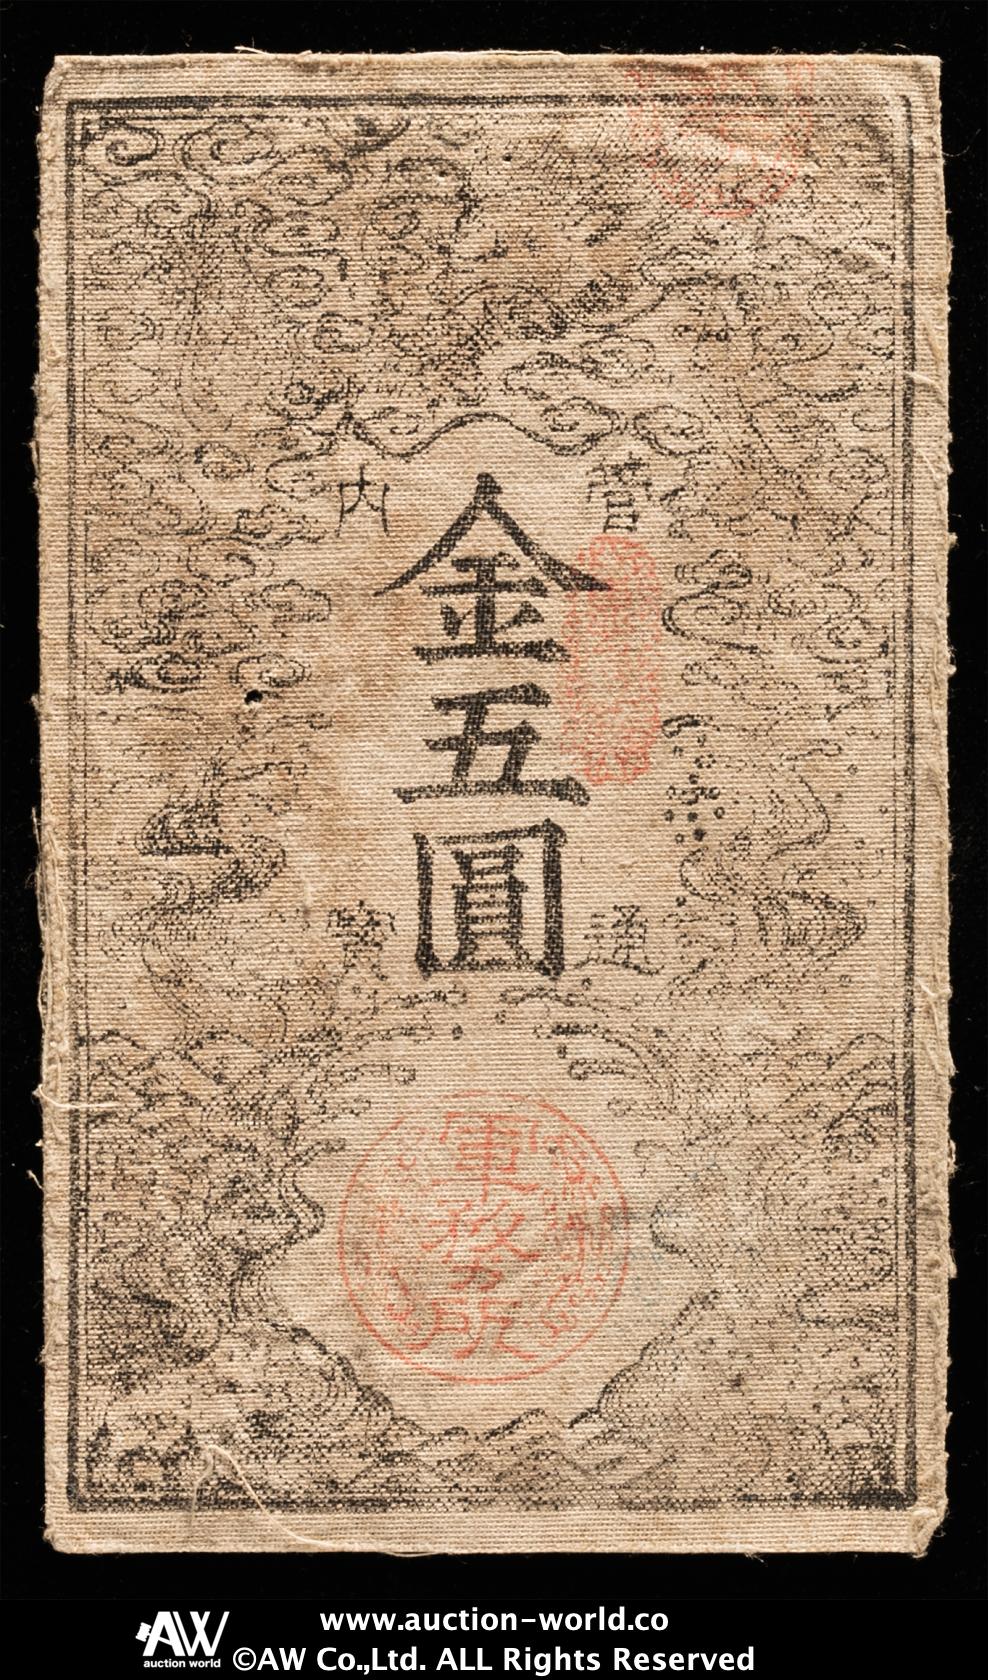 管内
金五圓
通寶
軍務所
AW
auction world
www.auction-world.co
©AW Co.,Ltd. ALL Rights Reserved